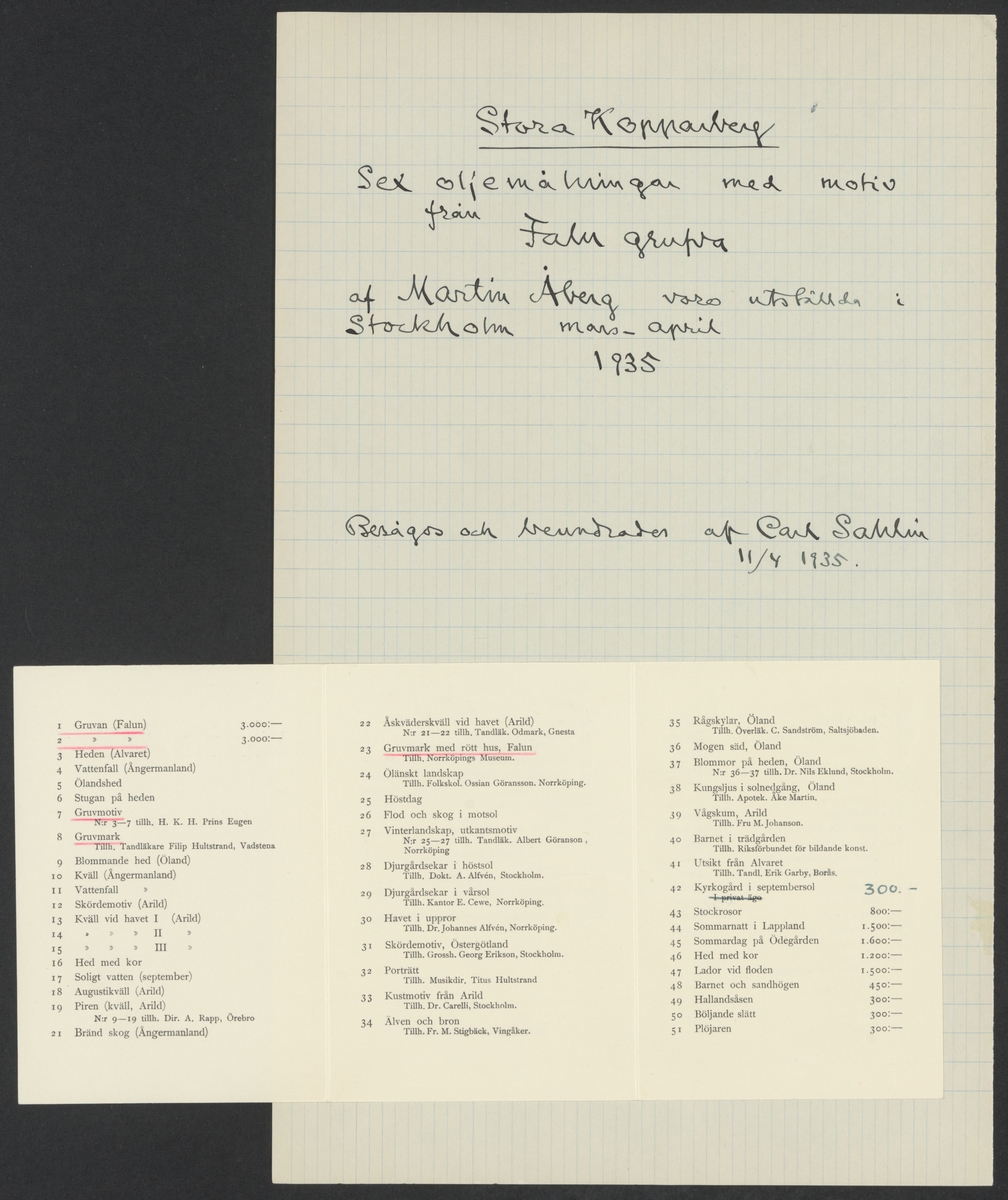 Stora Kopparberg
Sex oljemålningar med motiv
från
Falu grufva
af Martin Åberg voro utställda i
Stockholm mars-april
1935
Besågos och beundrades af Carl Sahlin
11/4 1935.
1 Gruvan (Falun) 3.000:—
2 » » 3.000:—
3 Heden (Alvaret)
4 Vattenfall (Ångermanland)
5 Ölandshed
6 Stugan på heden
7 Gruvmotiv
N:r 3—7 tillh. H. K. H. Prins Eugen
8 Gruvmark
Tillh. Tandläkare Filip Hultstrand, Vadstena
9 Blommande hed (Öland)
10 Kväll (Ångermanland)
11 Vattenfall »
12 Skördemotiv (Arild)
13 Kväll vid havet I (Arild)
14 » » » II »
15 » » » III »
16 Hed med kor
17 Soligt vatten (september)
18 Augustikväll (Arild)
19 Piren (kväll, Arild)
N:r 9—19 tillh. Dir. A. Rapp, Örebro
21 Bränd skog (Ångermanland)
22 Åskväderskväll vid havet (Arild)
N:r 21—22 tillh. Tandläk. Odmark, Gnesta
23 Gruvmark med rött hus, Falun
Tillh. Norrköpings Museum.
24 Ölänskt landskap
Tillh. Folkskol. Ossian Göransson. Norrköping.
25 Höstdag
26 Flod och skog i motsol
27 Vinterlandskap, utkantsmotiv
N:r 25—27 tillh. Tandläk. Albert Göranson,
Norrköping
28 Djurgårdsekar i höstsol
Tillh. Dokt. A. Alfvén, Stockholm.
29 Djurgårdsekar i vårsol
Tillh. Kantor E. Cewe, Norrköping.
30 Havet i uppror
Tillh. Dr. Johannes Alfvén, Norrköping.
31 Skördemotiv, Östergötland
Tillh. Grossh. Georg Erikson, Stockholm.
32 Porträtt
Tillh. Musikdir. Titus Hultstrand
33 Kustmotiv från Arild
Tillh. Dr. Carelli, Stockholm.
34 Älven och bron
Tillh. Fr. M. Stigbäck, Vingåker.
35 Rågskylar, Öland
Tillh. Överläk. C. Sandström, Saltsjöbaden.
36 Mogen säd, Öland
37 Blommor på heden, Öland
N:r 36—37 tillh. Dr. Nils Eklund, Stockholm.
38 Kungsljus i solnedgång, Öland
Tillh. Apotek. Åke Martin.
39 Vågskum, Arild
Tillh. Fru M. Johanson.
40 Barnet i trädgården
Tillh. Riksförbundet för bildande konst.
41 Utsikt från Alvaret
Tillh. Tandl. Erik Garby, Borås.
42 Kyrkogård i septembersol 300.-
I privat ägo
43 Stockrosor 800:—
44 Sommarnatt i Lappland 1.500:—
45 Sommardag på Ödegården 1.600:—
46 Hed med kor 1.200:—
47 Lador vid floden 1.500:—
48 Barnet och sandhögen 450:—
49 Hallandsåsen 300:—
50 Böljande slätt 300:—
51 Plöjaren 300:—